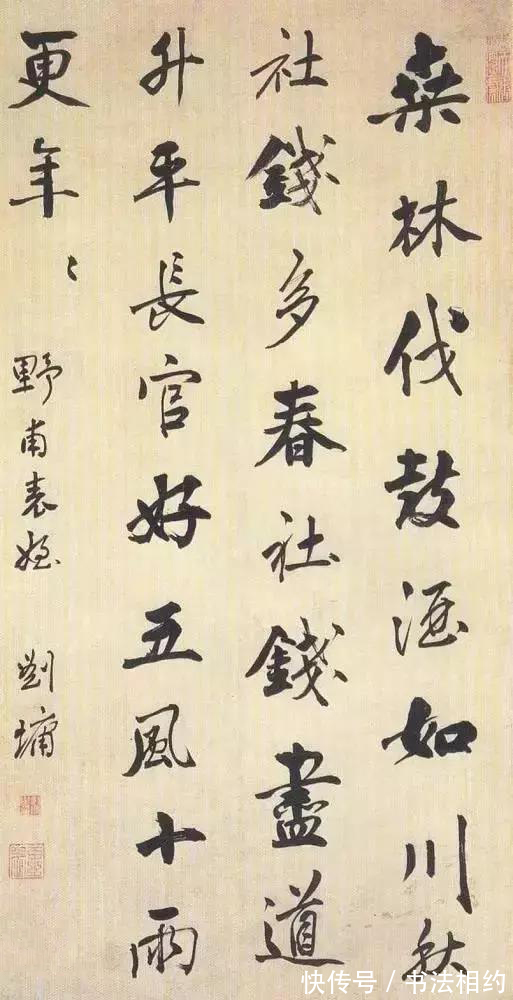 桑林伐鼓酒如川秋
社錢多春社錢盡道
升平長官好五風十雨
更年〻
野甫表姪 劉墉
快传号 / 书法相约